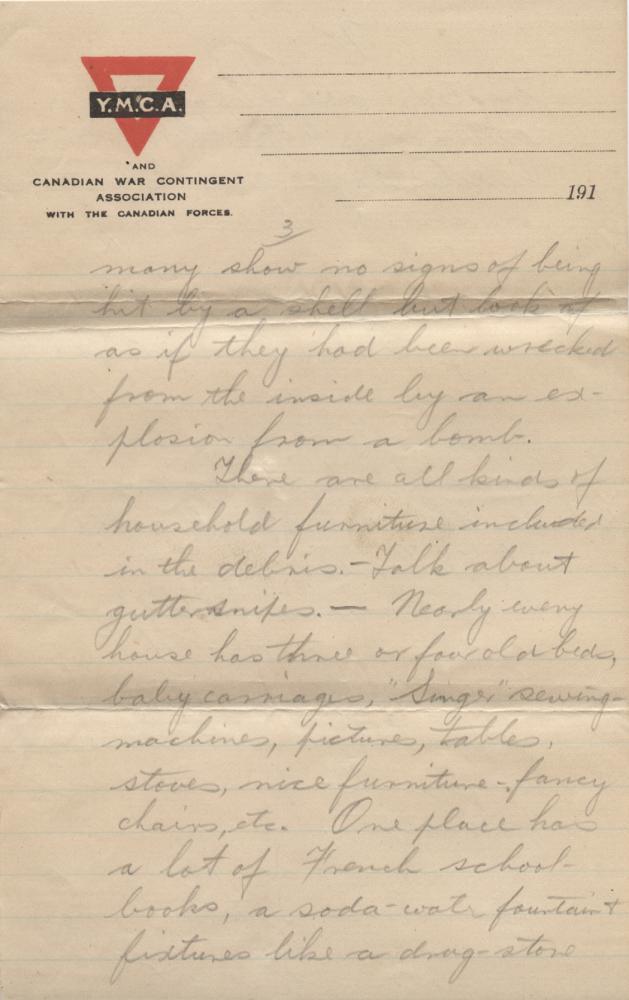 Y.M.C.A.
AND
CANADIAN WAR CONTINGENT
ASSOCIATION
WITH THE CANADIAN FORCES.
191
3
many show no signs of being
hit by a shell but look
as if they had been wrecked
from the inside by an ex-
plosion from a bomb.
There are all kinds of
household furniture included
in the debris. - Talk about
guttersnipes. — Nearly every
house has three or four old beds,
baby carriages, "Singer" sewing-
machines, pictures, tables,
stoves, nice furniture - fancy
chairs, etc. One place has
a lot of French school-
books, a soda-water fountain &
fixtures like a drug-store